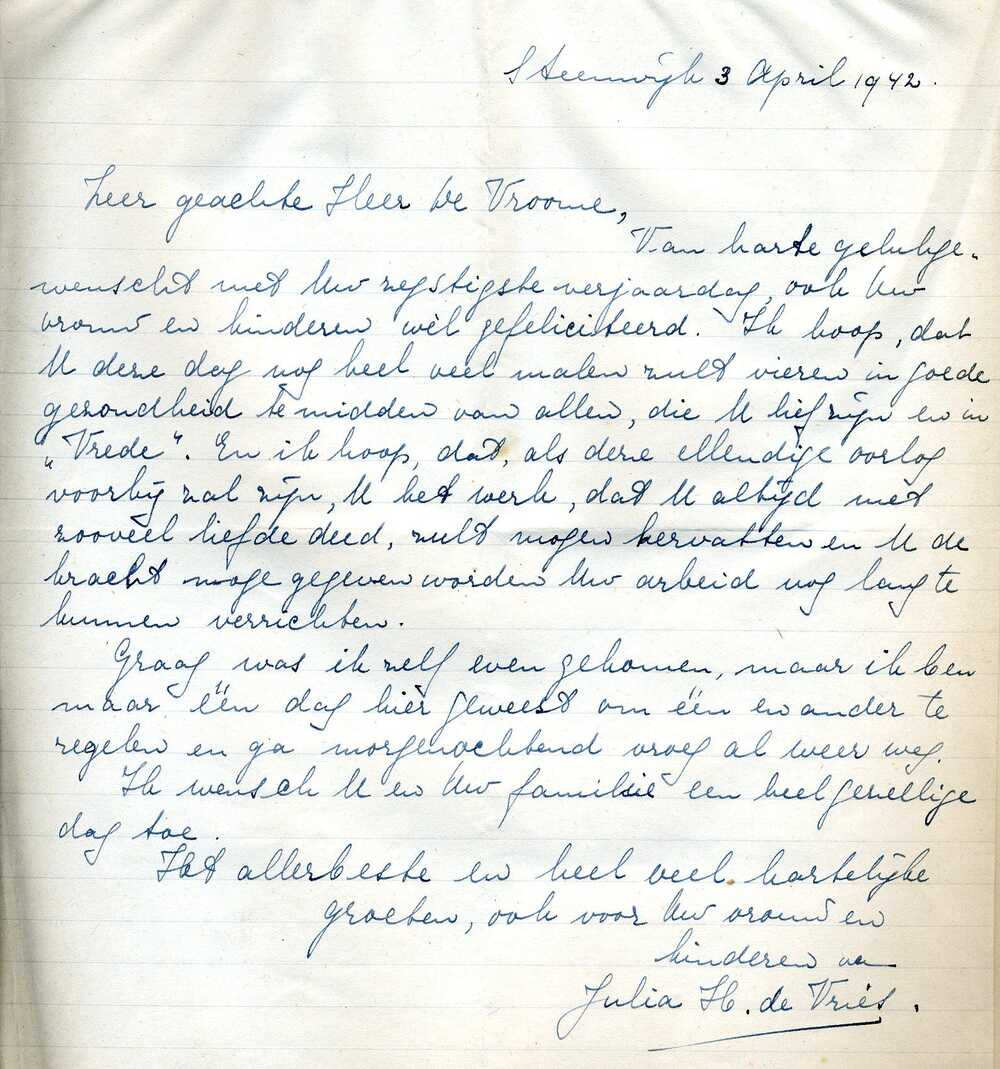 Steenwijk 3 April 1942.
Zeer geachte Heer De Vroome,
Van harte gelukge-
wenscht met Uw zestigste verjaardag, ook Uw
vrouw en kinderen wèl gefeliciteerd. Ik hoop, dat
U deze dag nog heel veel malen zult vieren in goede
gezondheid te midden van allen, die U lief zijn en in
„Vrede". En ik hoop, dat, als deze ellendige oorlog
voorbij zal zijn, U het werk, dat U altijd met
zooveel liefde deed, zult mogen hervatten en U de
kracht moge gegeven worden Uw arbeid nog lang te
kunnen verrichten.
Graag was ik zelf even gekomen, maar ik ben
maar één dag hier geweest om één en ander te
regelen en ga morgenochtend vroeg al weer weg.
Ik wensch U en Uw familie een heel gezellige
dag toe.
Het allerbeste en heel veel hartelijke
groeten, ook voor Uw vrouw en
kinderen van
Julia H. de Vries.